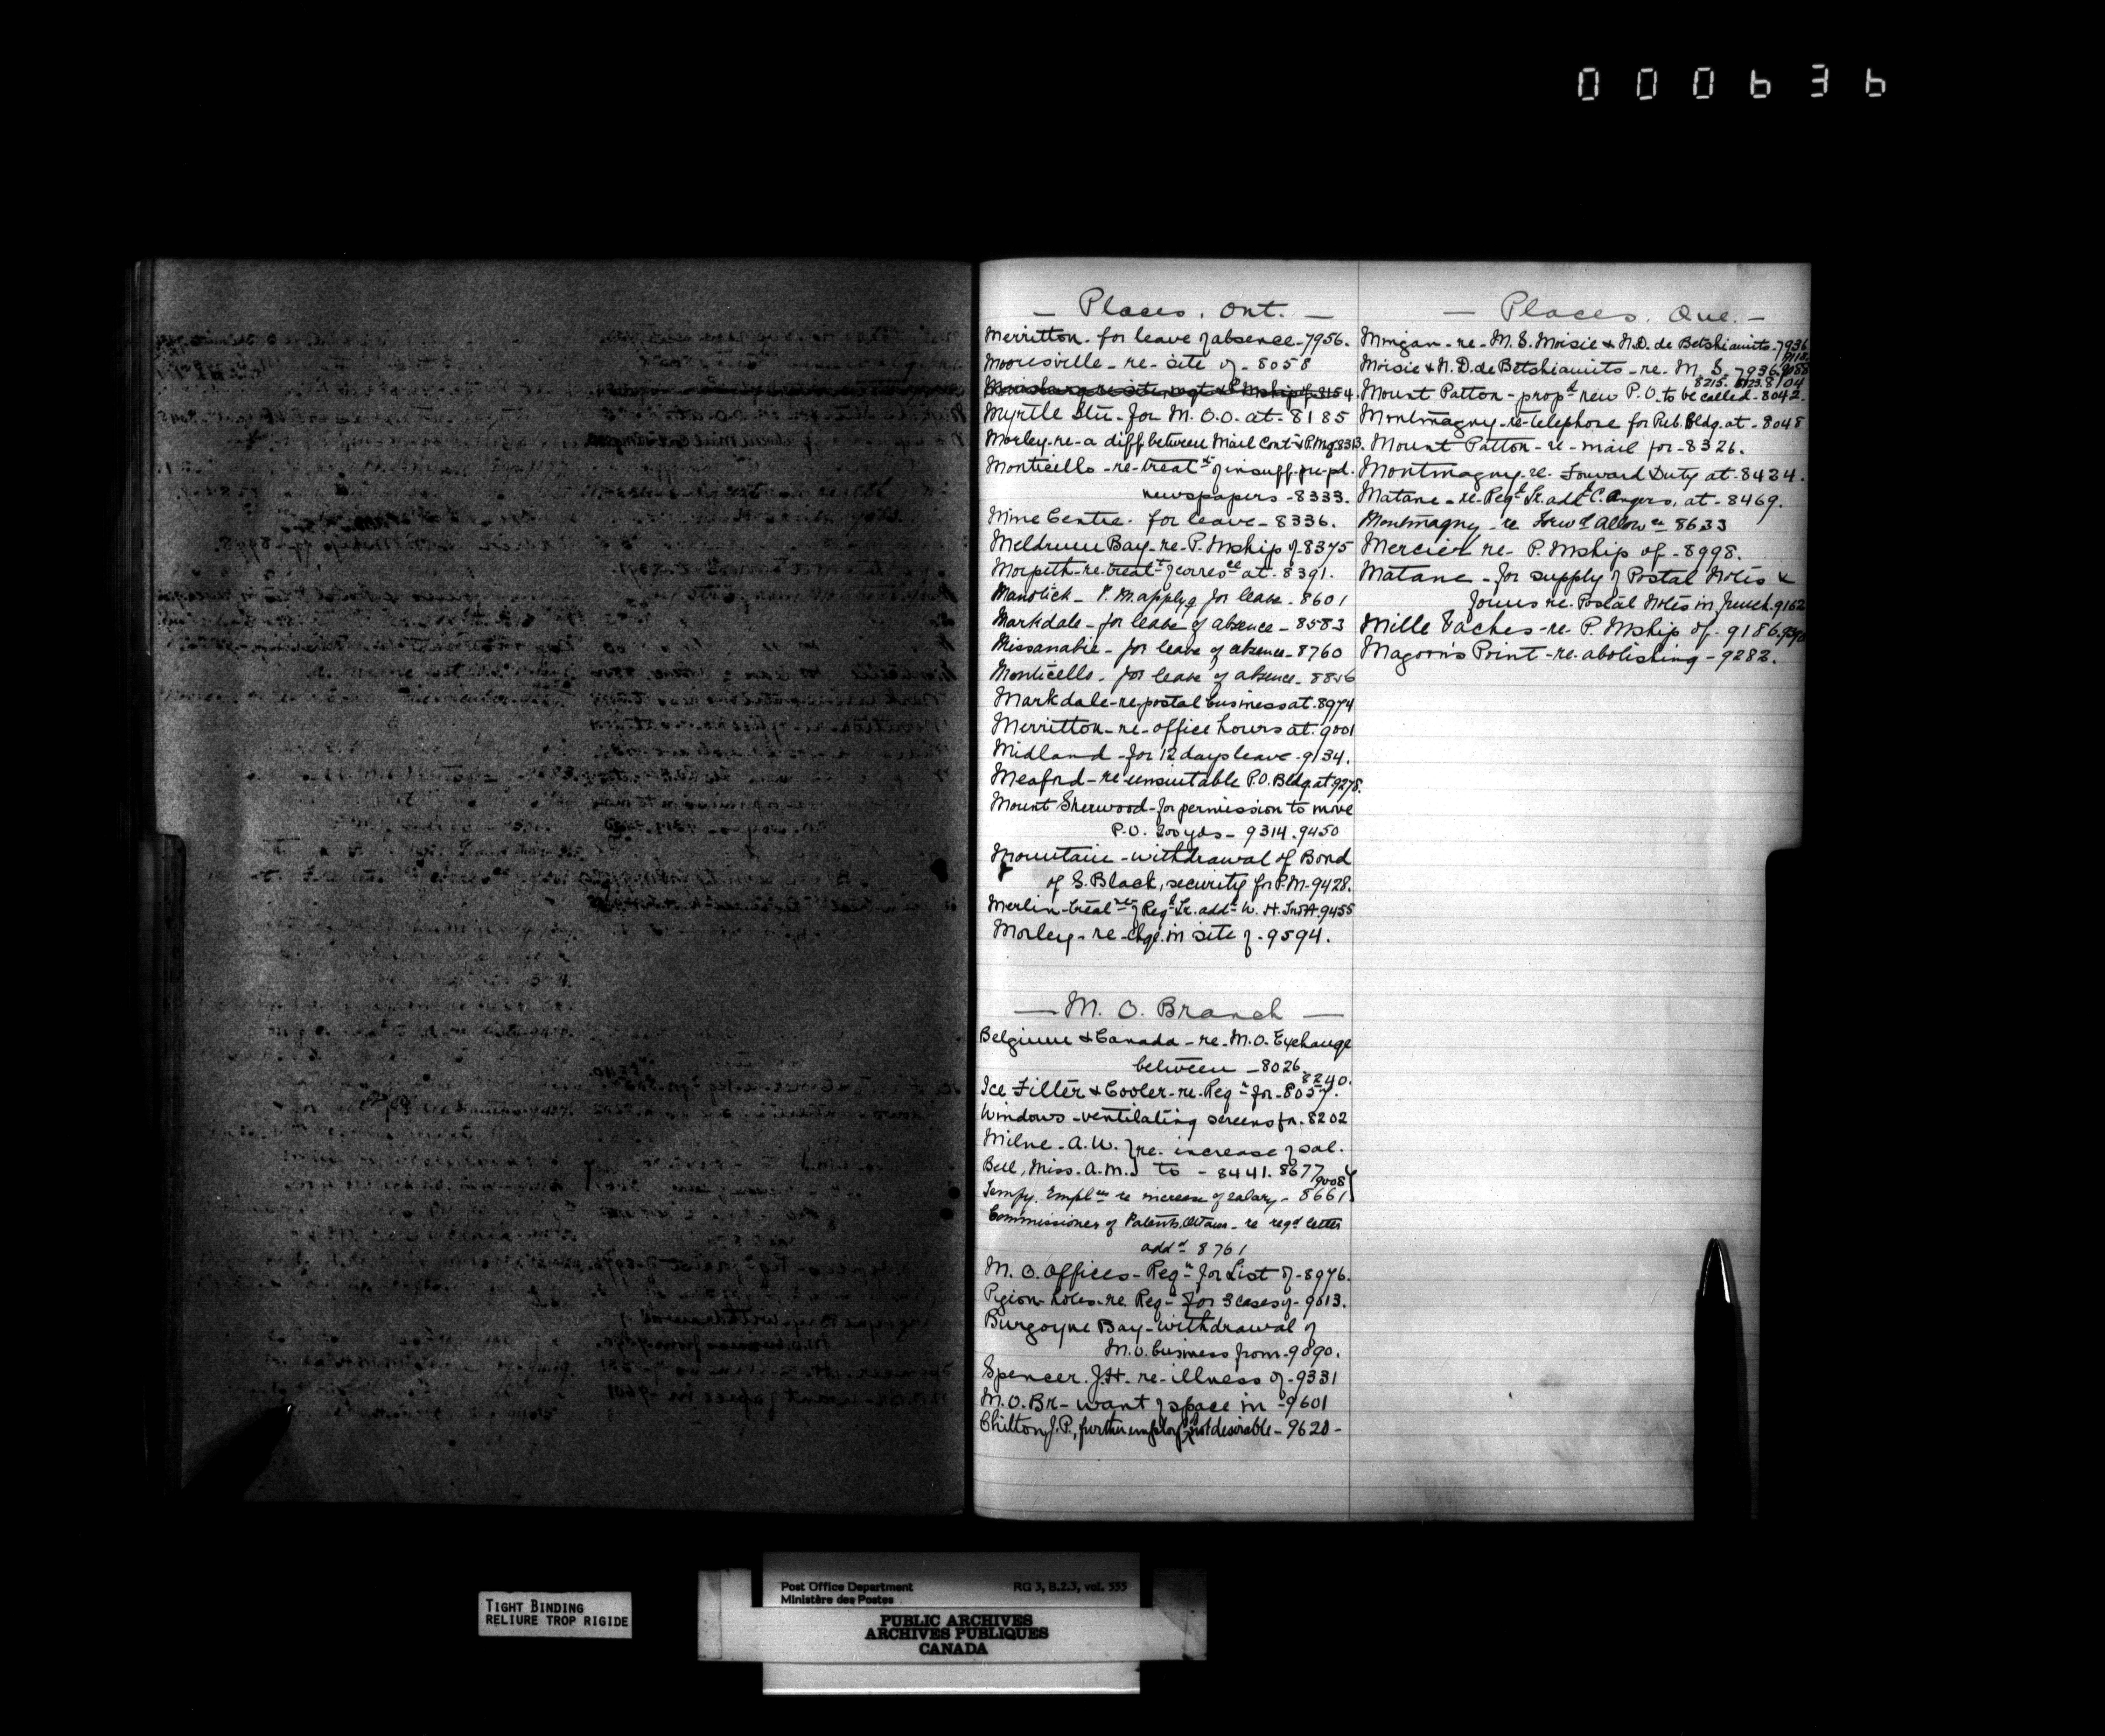 000636
— Places. Ont. —
Merritton - for leave of absence - 7956.
Mooresville - re - site of - 8058
Myrtle Stn. - for M. O. O. at - 8185
Morley - re - a diff between Mail Cont & P.M. 8313.
Monticello - re - treatt of insuff. pre-pd.
newspapers - 8333.
Mine Centre - for leave - 8336.
Meldrum Bay - re - P. Mship of - 8375
Morpeth - re treatt of corresce at - 8391.
Manotick - P. M. applyg for leave - 8601
Markdale - for leave of absence - 8583
Missanabie - for leave of absence - 8760
Monticello - for leave of absence - 8856
Markdale - re - postal business at - 8974
Merritton - re - office hours at - 9001
Midland - for 12 days leave - 9134.
Meaford - re - unsuitable P.O. Bldg. at 9278.
Mount Sherwood - for permission to move
P.O. 200 yds - 9314. 9450
Mountain - withdrawal of Bond
of S. Black, security for P.M. - 9428.
Merlin - treat of Regd Lr. addd W. H. 9455
Morley - re - chge. in site of - 9594.
— M. O. Branch —
Belgium & Canada - re - M.O. Exchange
between - 8026.
8240.
Ice Filter & Cooler - re - Reqn for - 8057.
Windows - ventilating screens for - 8202
Milne - A. W. } re - increase of sal.
Bell, Miss. A. M. } to - 8441. 8677
9008
Tempy. Emplees re increase of salary - 8661
Commissioner of Patents, Ottawa - re regd letter
addd 8761
M. O. Offices - Reqn for List of - 8976.
Pigeon-holes - re Reqn for 3 cases of - 9013.
Burgoyne Bay - withdrawal of
M.O. business from - 9090.
Spencer. J.H. re - illness of - 9331
M. O. Br - want of space in - 9601
Chilton J. P., further employt not desirable - 9620 -
— Places. Que. —
Mingan - re - M. S. Moisie & N.D. de Betshiamits - 7936
9118.
Moisie & N. D. de Betshiamits - re - M. S. - 7936. 9088
8215. 8123. 8104
Mount Patton - propd new P. O. to be called - 8042.
Montmagny - re - telephone for Pub. Bldg. at - 8048
Mount Patton - re - mail for - 8326.
Montmagny - re. Forward Duty at - 8424.
Matane - re - Regd Lr. addd C. Angers, at - 8469.
Montmagny - re Forwd Allowce 8633
Mercier re - P. Mship of - 8998.
Matane - for supply of Postal Notes &
forms re. Postal Notes in french. 9162
Mille Vaches - re - P. Mship of - 9186.
Magoon's Point - re - abolishing - 9282.
TIGHT BINDING
RELIURE TROP RIGIDE
Post Office Department RG 3, B.2.3, vol. 335
Ministère des Postes
PUBLIC ARCHIVES
ARCHIVES PUBLIQUES
CANADA